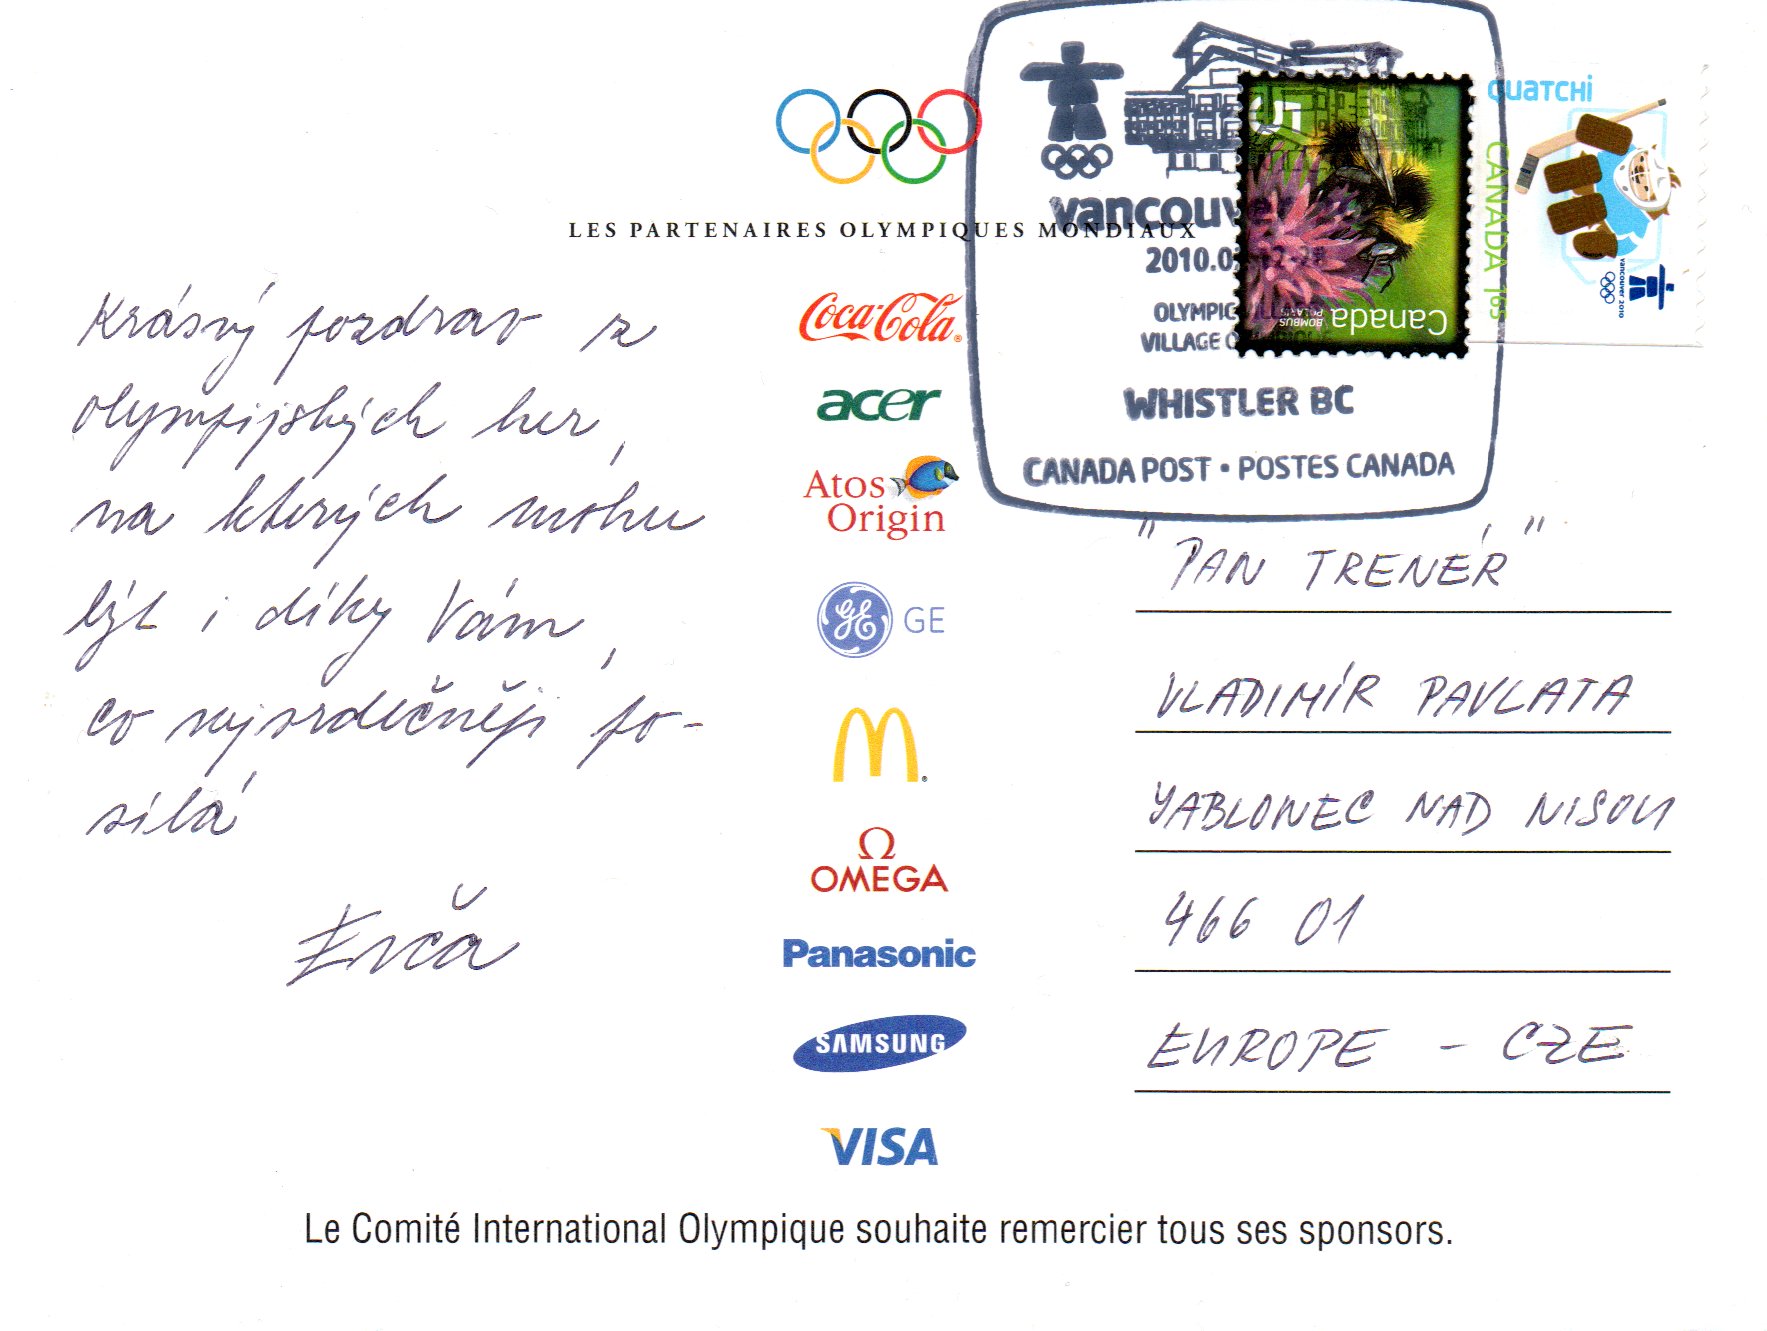 LES PARTENAIRES OLYMPIQUES MONDIAUX
Krásný pozdrav z
olympijských her,
na kterých mohu
být i díky Vám,
co nejsrdečněji po-
sílá
Evča
Coca-Cola
acer
Atos
Origin
GE
GE
M
Ω
OMEGA
Panasonic
SAMSUNG
VISA
vancouver
2010.0
OLYMPIC
VILLAGE O
WHISTLER BC
CANADA POST • POSTES CANADA
Canada
BOMBUS
POLARIS
QUATCHI
CANADA 165
vancouver 2010
"PAN TRENÉR"
VLADIMÍR PAVLATA
JABLONEC NAD NISOU
466 01
EUROPE - CZE
Le Comité International Olympique souhaite remercier tous ses sponsors.